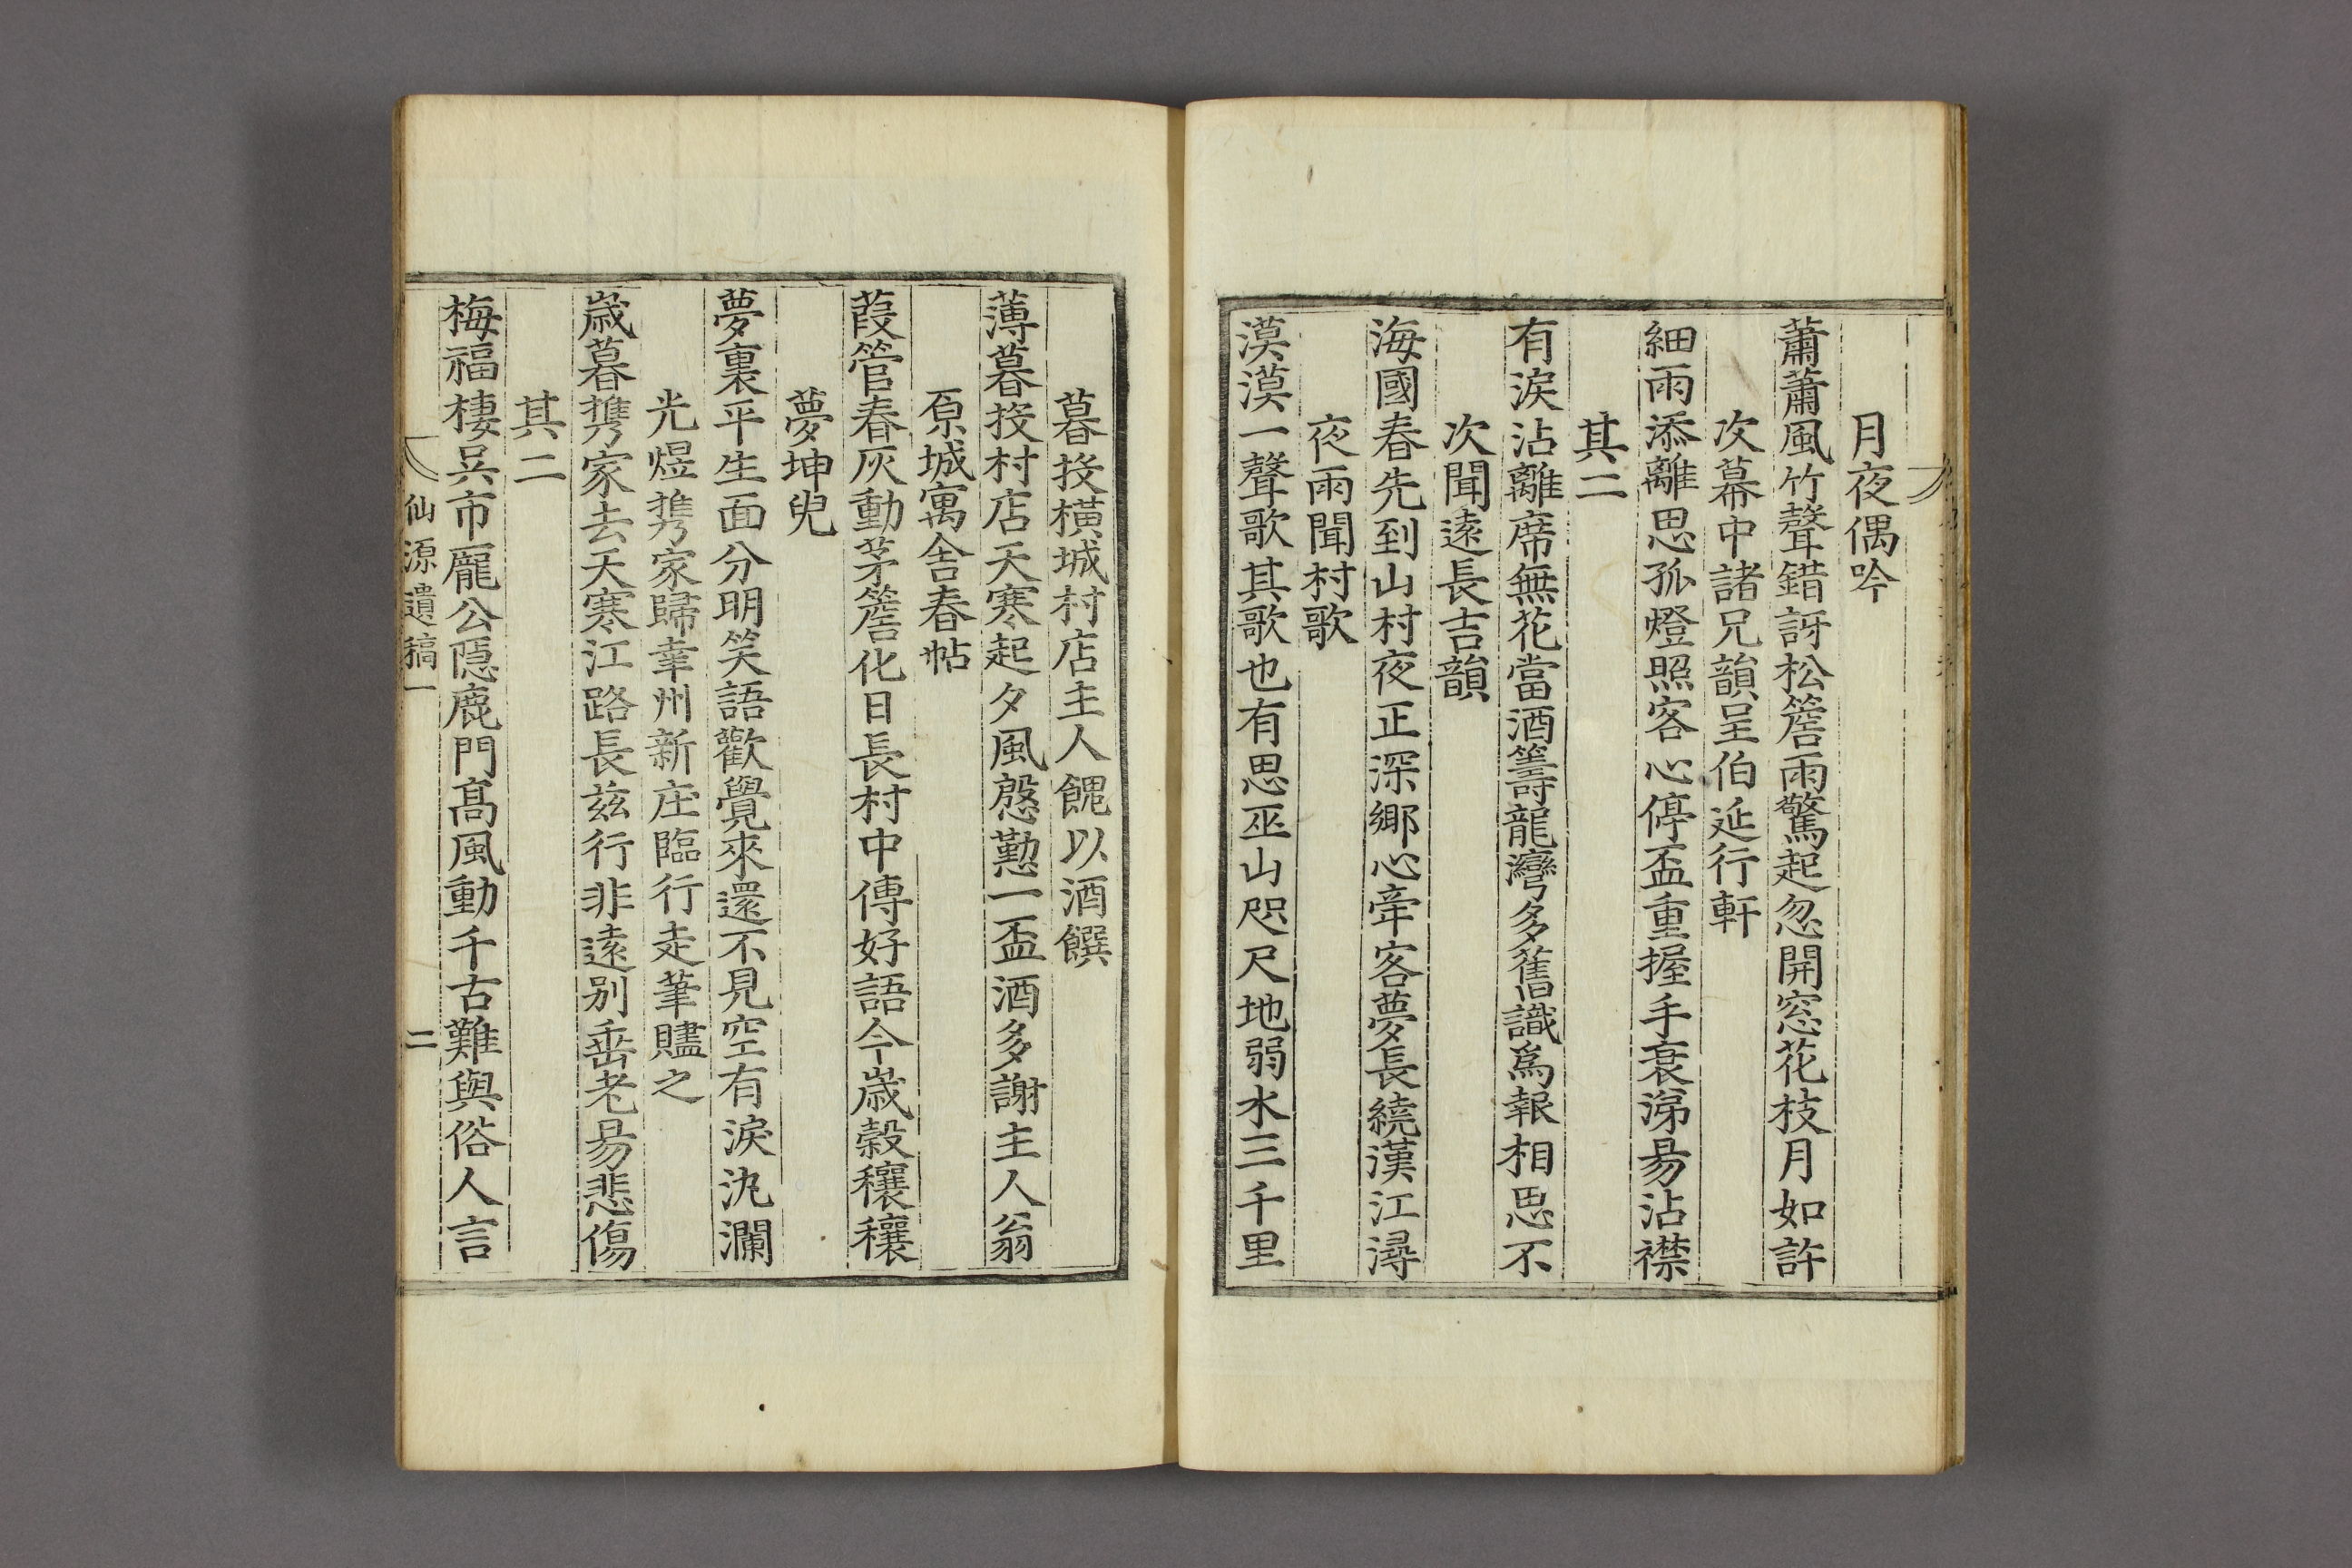 月夜偶吟
蕭蕭風竹聲錯訝松簷雨驚起忽開窓花枝月如許
次幕中諸兄韻呈伯延行軒
細雨添離思孤燈照客心停盃重握手衰涕易沾襟
其二
有淚沾離席無花當酒籌龍灣多舊識爲報相思不
次聞遠長吉韻
海國春先到山村夜正深鄉心牽客夢長繞漢江潯
夜雨聞村歌
漠漠一聲歌其歌也有思巫山咫尺地弱水三千里
暮投橫城村店主人餽以酒饌
薄暮投村店天寒起夕風慇懃一盃酒多謝主人翁
原城寓舍春帖
葭管春灰動茅簷化日長村中傳好語今歲穀穰穰
夢坤兒
夢裏平生面分明笑語歡覺來還不見空有淚汍瀾
光煜携家歸韋州新庄臨行走筆贐之
歲暮携家去天寒江路長玆行非遠别垂老易悲傷
其二
梅福棲吳市龐公隱鹿門高風動千古難與俗人言
仙源遺稿一
二